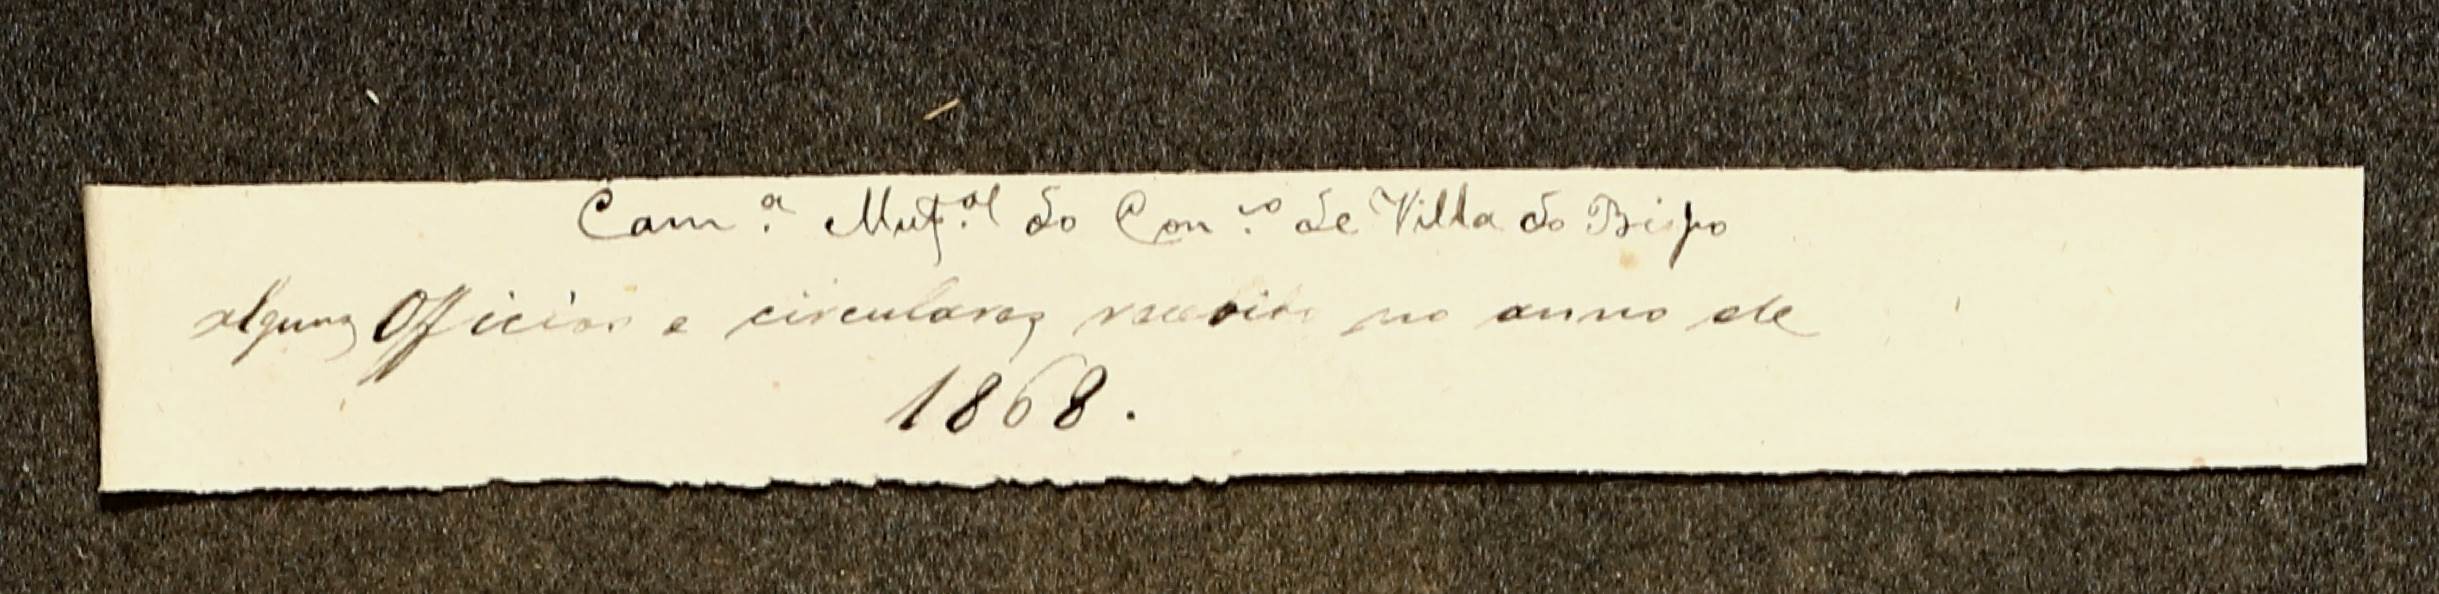 Cam.ª Mup.al do Con.co de Villa do Bispo
alguns Officios e circulares recebido no anno de
1868.